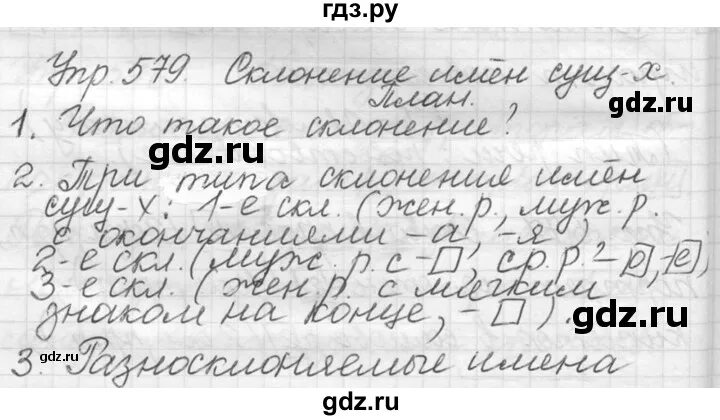 гдз.ру
Упр. 579. Склонение имён сущ-х.
План.
1. Что такое склонение?
gdz.ru gdz.ru
2. Три типа склонения имён
сущ-х: 1-е скл. (жен.р., муж.р.
с окончаниями -а, -я),
gdz.ru gdz.ru
2-е скл. (муж.р. с -□, ср.р. -о, -е),
3-е скл. (жен.р. с мягким
знаком на конце, -□).
gdz.ru gdz.ru
3. Разносклоняемые имена
gdz.ru
gdz.ru